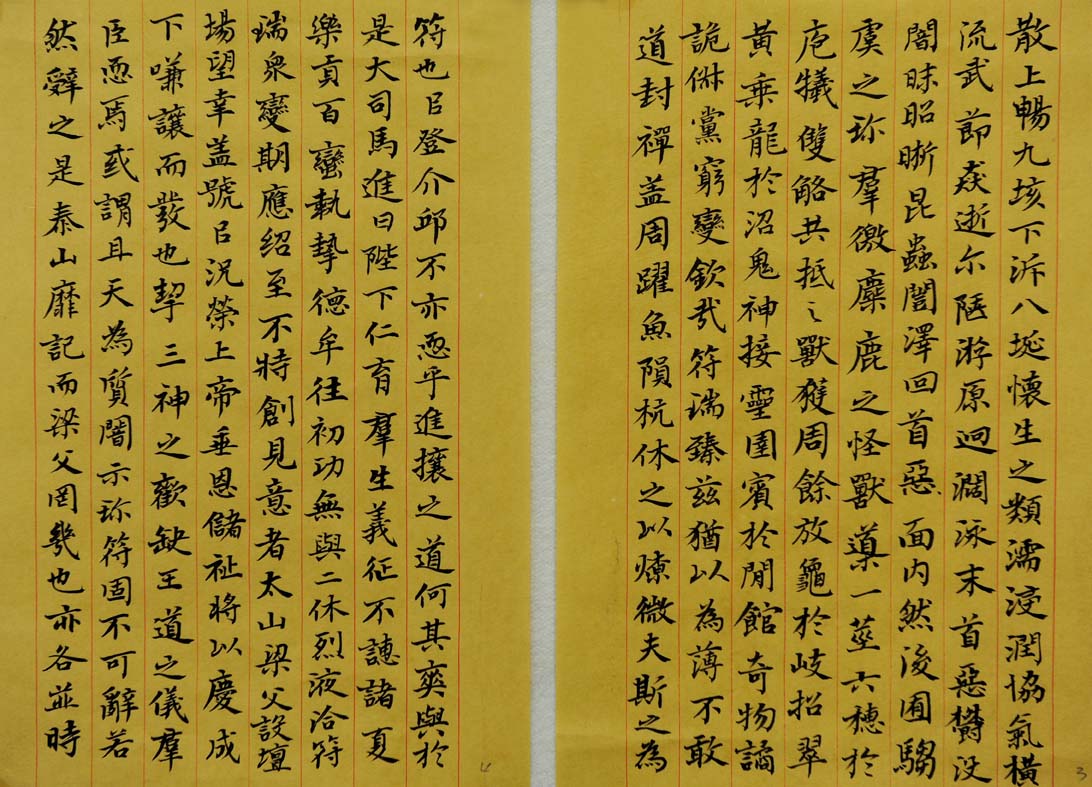 散上暢九垓下泝八埏懷生之類濡浸潤協氣橫
流武節猋逝尔陿游原迥濶泳末首惡欝没
闇昧昭晣昆蟲闓澤回首惡面内然後囿騶
虞之珎羣徼麋鹿之怪獸䆃一莖六穗於
庖犧雙觡共抵之獸獲周餘放龜於岐招翠
黃乘龍於沼鬼神接靈圉賓於閒館奇物譎
詭俶黨窮變欽哉符瑞臻茲猶以為薄不敢
道封禪盖周躍魚隕杭休之以燎微夫斯之為
3
符也㠯登介邱不亦恧乎進攘之道何其爽與於
是大司馬進曰陛下仁育羣生義征不譓諸夏
樂貢百蠻執摯德牟往初功無與二休烈液洽符
瑞衆變期應紹至不特創見意者太山梁父設壇
場望幸盖號㠯況榮上帝垂恩儲祉將以慶成
下嗛讓而發也挈三神之歡缺王道之儀羣
臣恧焉或謂且天為質闇示珎符固不可辭若
然辭之是泰山靡記而梁父罔幾也亦各並時
4